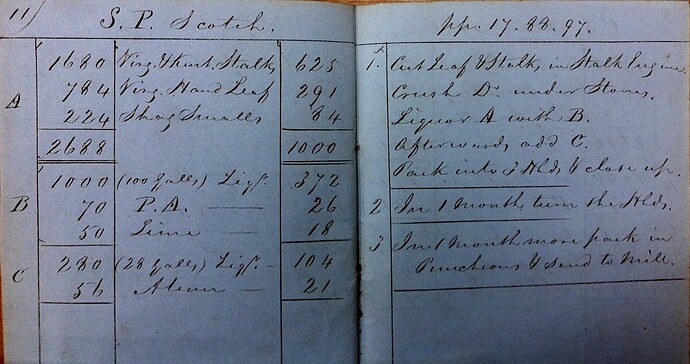 11) S. P. Scotch.
A
1680 Virg. & Kent. Stalks 625
784 Virg. Hand Leaf 291
224 Shag Smalls 84
2688 1000
B
1000 (100 Galls) Liqr. 372
70 P.A. — 26
50 Lime — 18
C
280 (28 Galls) Liqr. — 104
56 Alum — 21
pp. 17. 88. 97.
1. Cut Leaf & Stalks in Stalk Engine
Crush Do. under Stones.
Liquor A with B.
Afterwards add C.
Pack into 3 Hhds & close up.
2 In 1 month turn the Hhds.
3 In 1 month more pack in
Puncheons & send to Mill.